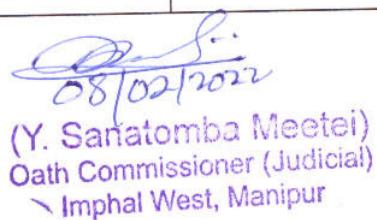 08/02/2022
(Y. Sanatomba Meetei)
Oath Commissioner (Judicial)
Imphal West, Manipur